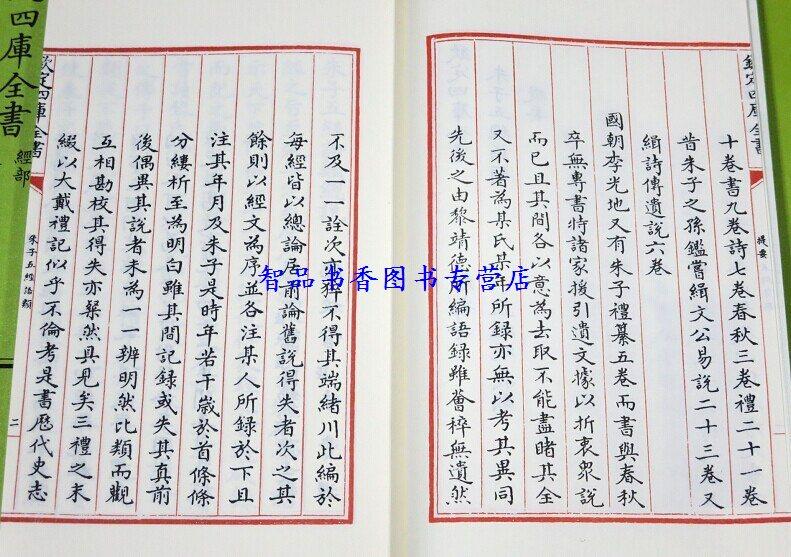 欽定四庫全書
提要
十卷書九卷詩七卷春秋三卷禮二十一卷
昔朱子之孫鑑嘗緝文公易說二十三卷又
緝詩傳遺說六卷
國朝李光地又有朱子禮纂五卷而書與春秋
卒無專書特諸家援引遺文據以折衷眾說
而已且其間各以意為去取不能盡睹其全
又不著為某氏某年所録亦無以考其異同
先後之由黎靖德所編語録雖薈稡無遺然
不及一一詮次亦猝不得其端緒川此編於
每經皆以總論居前論舊說得失者次之其
餘則以經文為序並各注某人所録於下且
注其年月及朱子是時年若干歲於首條條
分縷析至為明白雖其間記録或失其真前
後偶異其說者未為一一辨明然比類而觀
互相勘校其得失亦粲然具見矣三禮之末
綴以大戴禮記似乎不倫考是書歷代史志
欽定四庫全書
朱子五經語類
二
四庫全書
經部
智品书香图书专营店